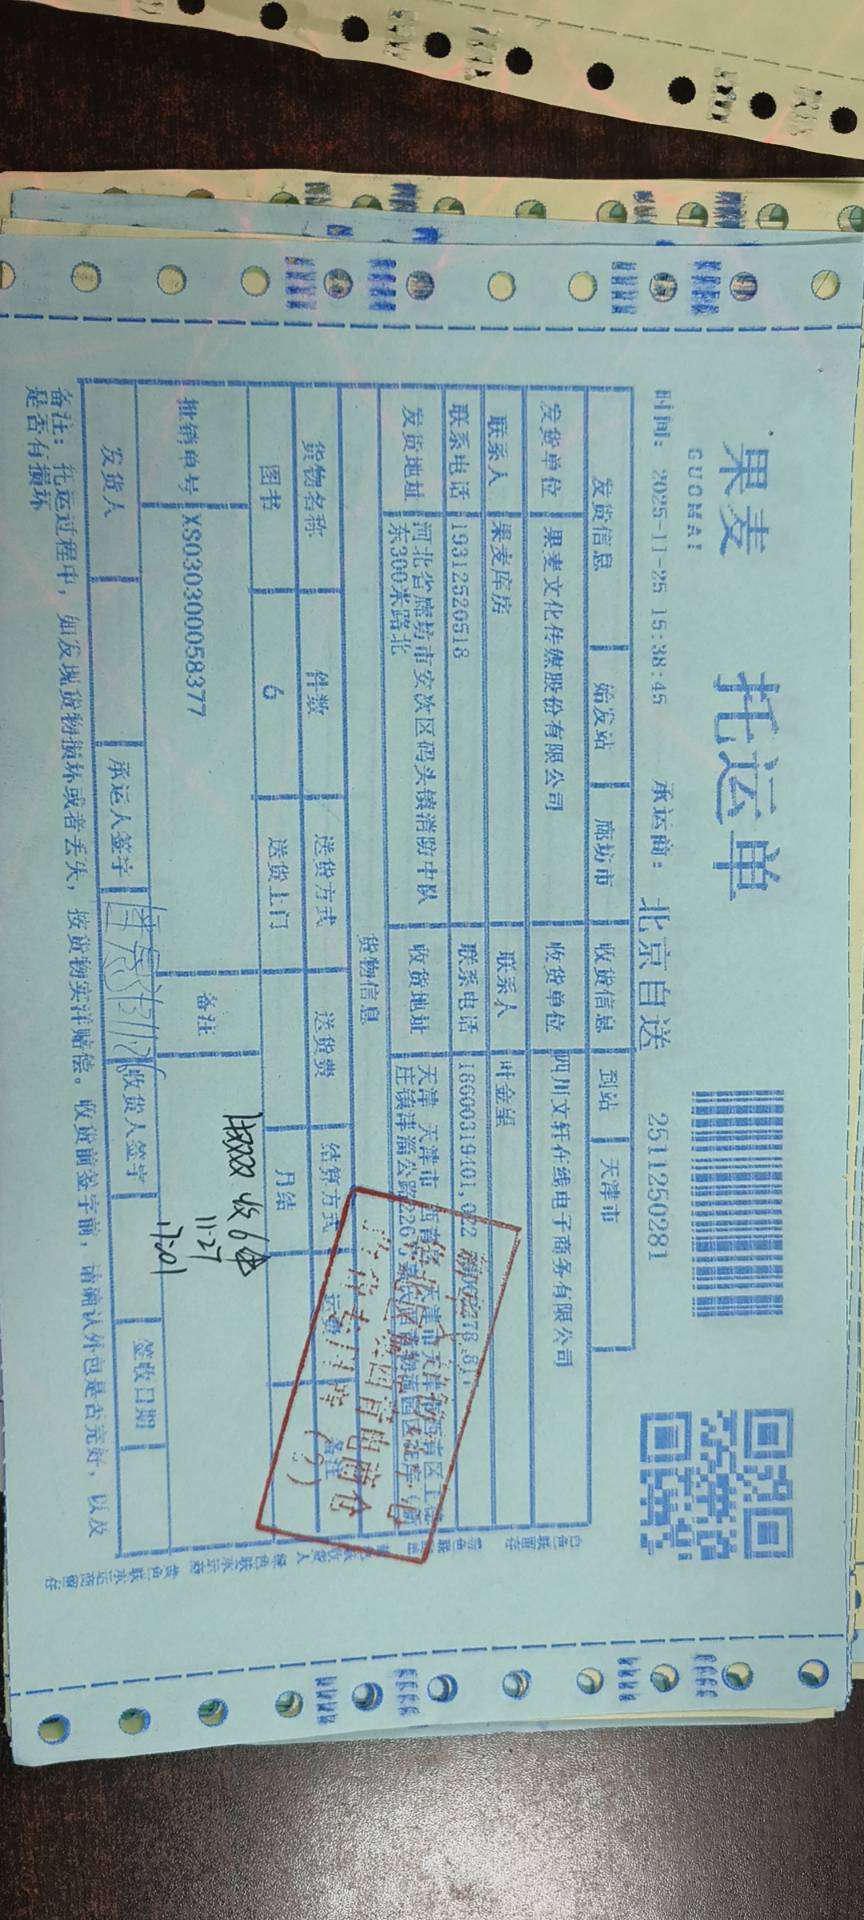 果麦
GUOMAI
托运单
时间: 2025-11-25 15:38:45 承运商: 北京自送 2511250281
发货信息 始发站 廊坊市 收货信息 到站 天津市
发货单位 果麦文化传媒股份有限公司 收货单位 四川文轩在线电子商务有限公司
联系人 果麦库房 联系人 叶金望
联系电话 19312520518 联系电话 18600319401,022
发货地址 河北省廊坊市安次区码头镇消防中队东300米路北 收货地址 天津 天津市 西青
庄镇津涌公路226号
货物信息
货物名称 件数 送货方式 送货费 结算方式 运费 备注
图书 6 送货上门 月结
批销单号 XS030300058377 备注
收6包
11.27
17:01
发货人 承运人签字 收货人签字 签收日期
备注: 托运过程中, 如发现货物损坏或者丢失, 按货物实洋赔偿。收货前签字前, 请确认外包是否完好, 以及
是否有损坏
白色联留存
绿色联承运商
黄色联承运商留存